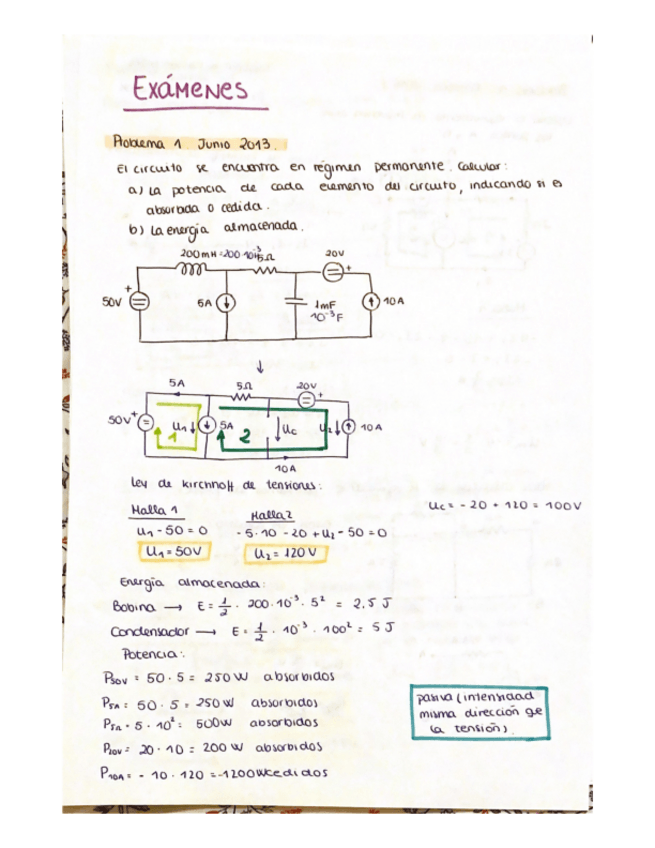 Exámenes
Problema 1 Junio 2013.
El circuito se encuentra en régimen permanente. Calcular:
a) La potencia de cada elemento del circuito, indicando si es
absorbida o cedida.
b) La energía almacenada.
200mH=200·10⁻³ 5Ω 20V
+ +
50V 5A 1mF 10A
10⁻³F
↓
5A 5Ω 20V
+ +
50V U₁↓ 5A ↓Uc U₂↓ 10A
1 2
10A
Ley de Kirchhoff de tensiones:
Malla 1 Malla 2 Uc = - 20 + 120 = 100V
U₁ - 50 = 0 - 5·10 - 20 + U₂ - 50 = 0
U₁ = 50V U₂ = 120 V
Energía almacenada:
Bobina → E = 1/2 · 200·10⁻³ · 5² = 2,5 J
Condensador → E = 1/2 · 10⁻³ · 100² = 5 J
Potencia:
P50V = 50 · 5 = 250 W absorbidos
P5A = 50 · 5 = 250 W absorbidos
P5Ω = 5 · 10² = 500W absorbidos
P20V = 20 · 10 = 200 W absorbidos
P10A = - 10 · 120 = -1200W cedidos
pasiva (intensidad
misma dirección qe
la tensión)